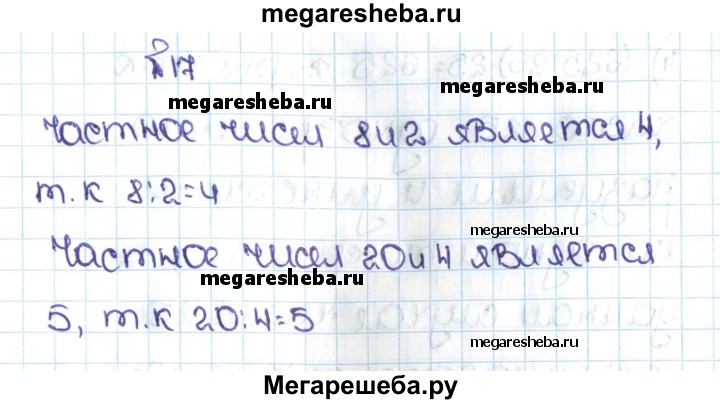 megaresheba.ru
№17
megaresheba.ru
megaresheba.ru
частное чисел 8 и 2 является 4,
т.к 8:2=4
megaresheba.ru
Частное чисел 20 и 4 является
megaresheba.ru
5, т.к 20:4=5
megaresheba.ru
Мегарешеба.ру